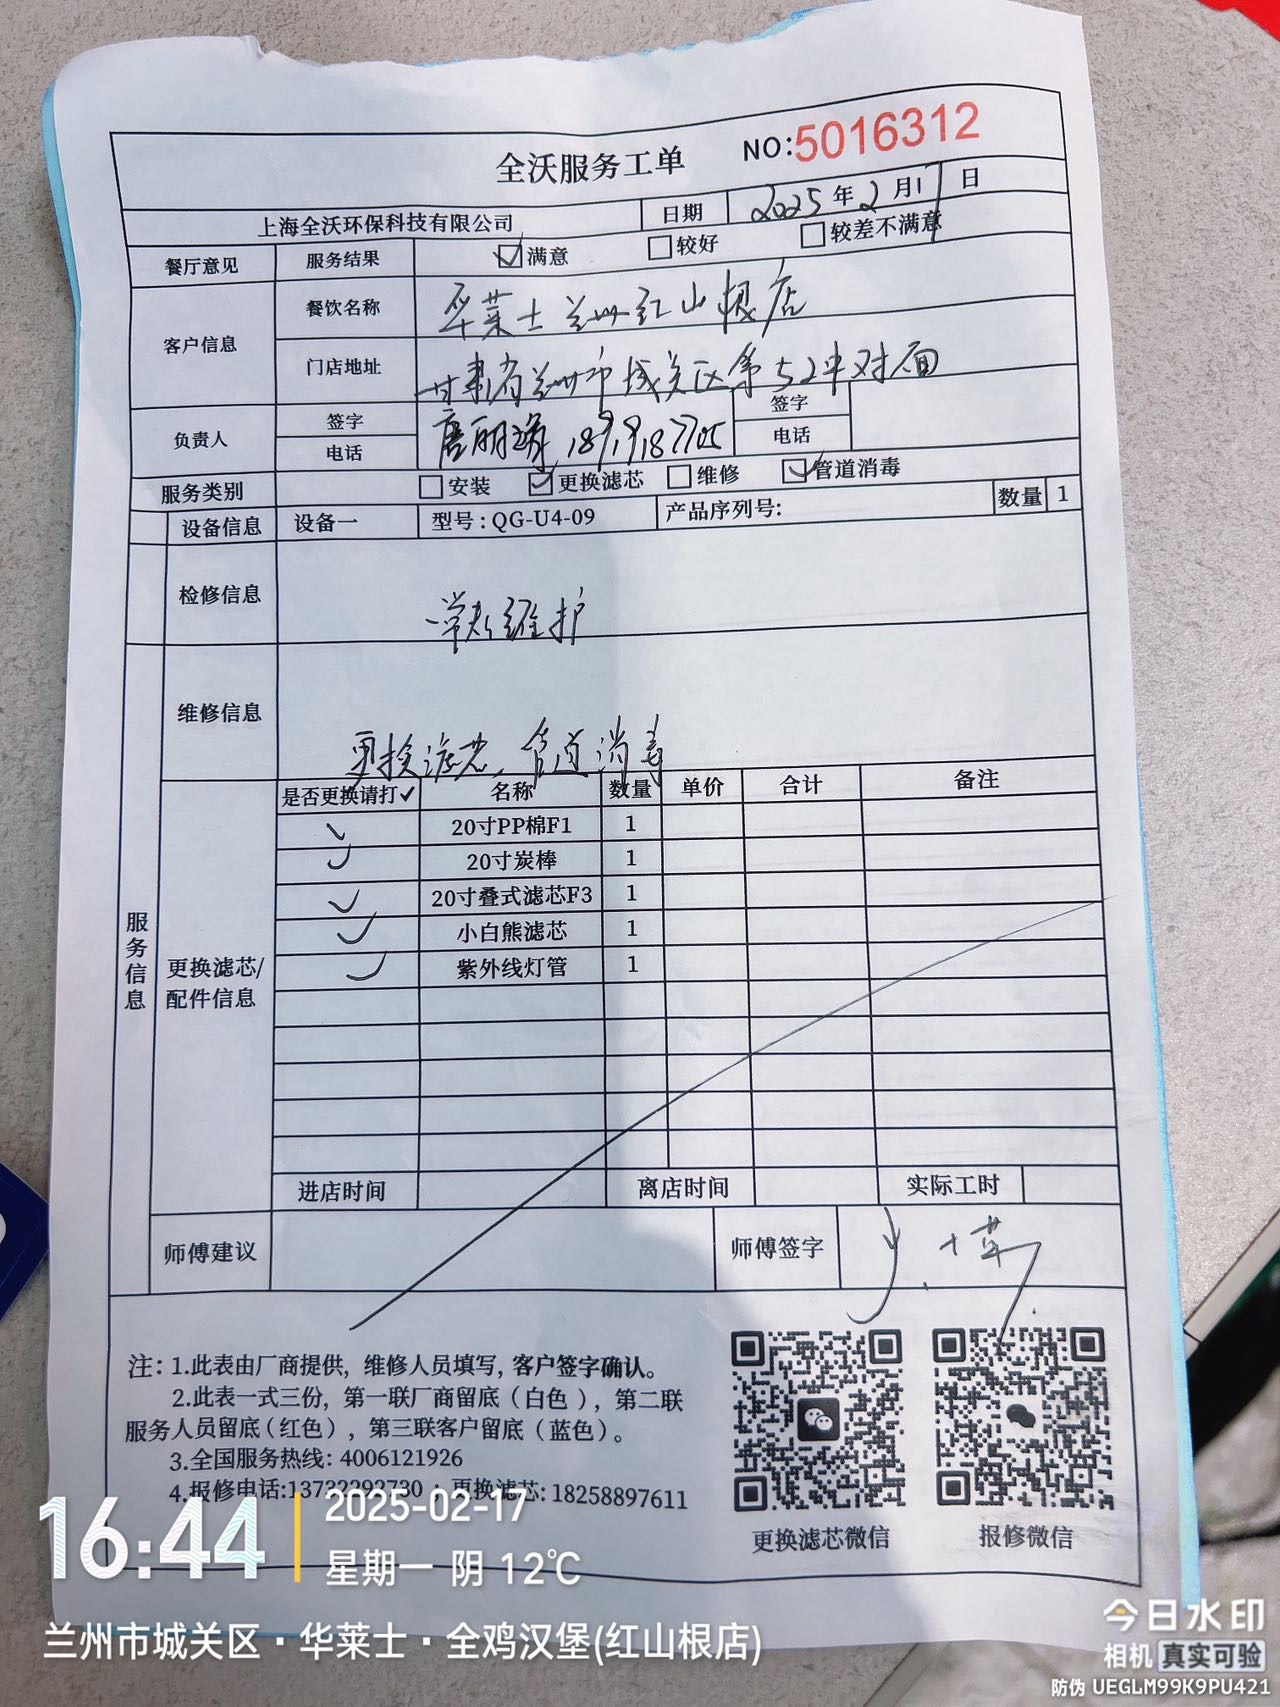 全沃服务工单 NO:5016312
上海全沃环保科技有限公司 日期 2025年2月17日
餐厅意见 服务结果 ☑满意 ☐较好 ☐较差不满意
客户信息 餐饮名称 华莱士兰州红山根店
门店地址 甘肃省兰州市城关区第52中对面
负责人 签字 唐丽 签字
电话 18919187705 电话
服务类别 ☐安装 ☑更换滤芯 ☐维修 ☑管道消毒
设备信息 设备一 型号:QG-U4-09 产品序列号: 数量 1
检修信息 维护
维修信息 更换滤芯、管道消毒
服务信息
更换滤芯/配件信息
是否更换请打✓ 名称 数量 单价 合计 备注
✓ 20寸PP棉F1 1
✓ 20寸炭棒 1
✓ 20寸叠式滤芯F3 1
✓ 小白熊滤芯 1
✓ 紫外线灯管 1
进店时间 离店时间 实际工时
师傅建议 师傅签字
注:1.此表由厂商提供,维修人员填写,客户签字确认。
2.此表一式三份,第一联厂商留底(白色),第二联
服务人员留底(红色),第三联客户留底(蓝色)。
3.全国服务热线:4006121926
4.报修电话:13732293730,更换滤芯:18258897611
更换滤芯微信 报修微信
16:44 2025-02-17
星期一 阴 12℃
兰州市城关区·华莱士·全鸡汉堡(红山根店)
今日水印
相机 真实可验
防伪 UEGLM99K9PU421